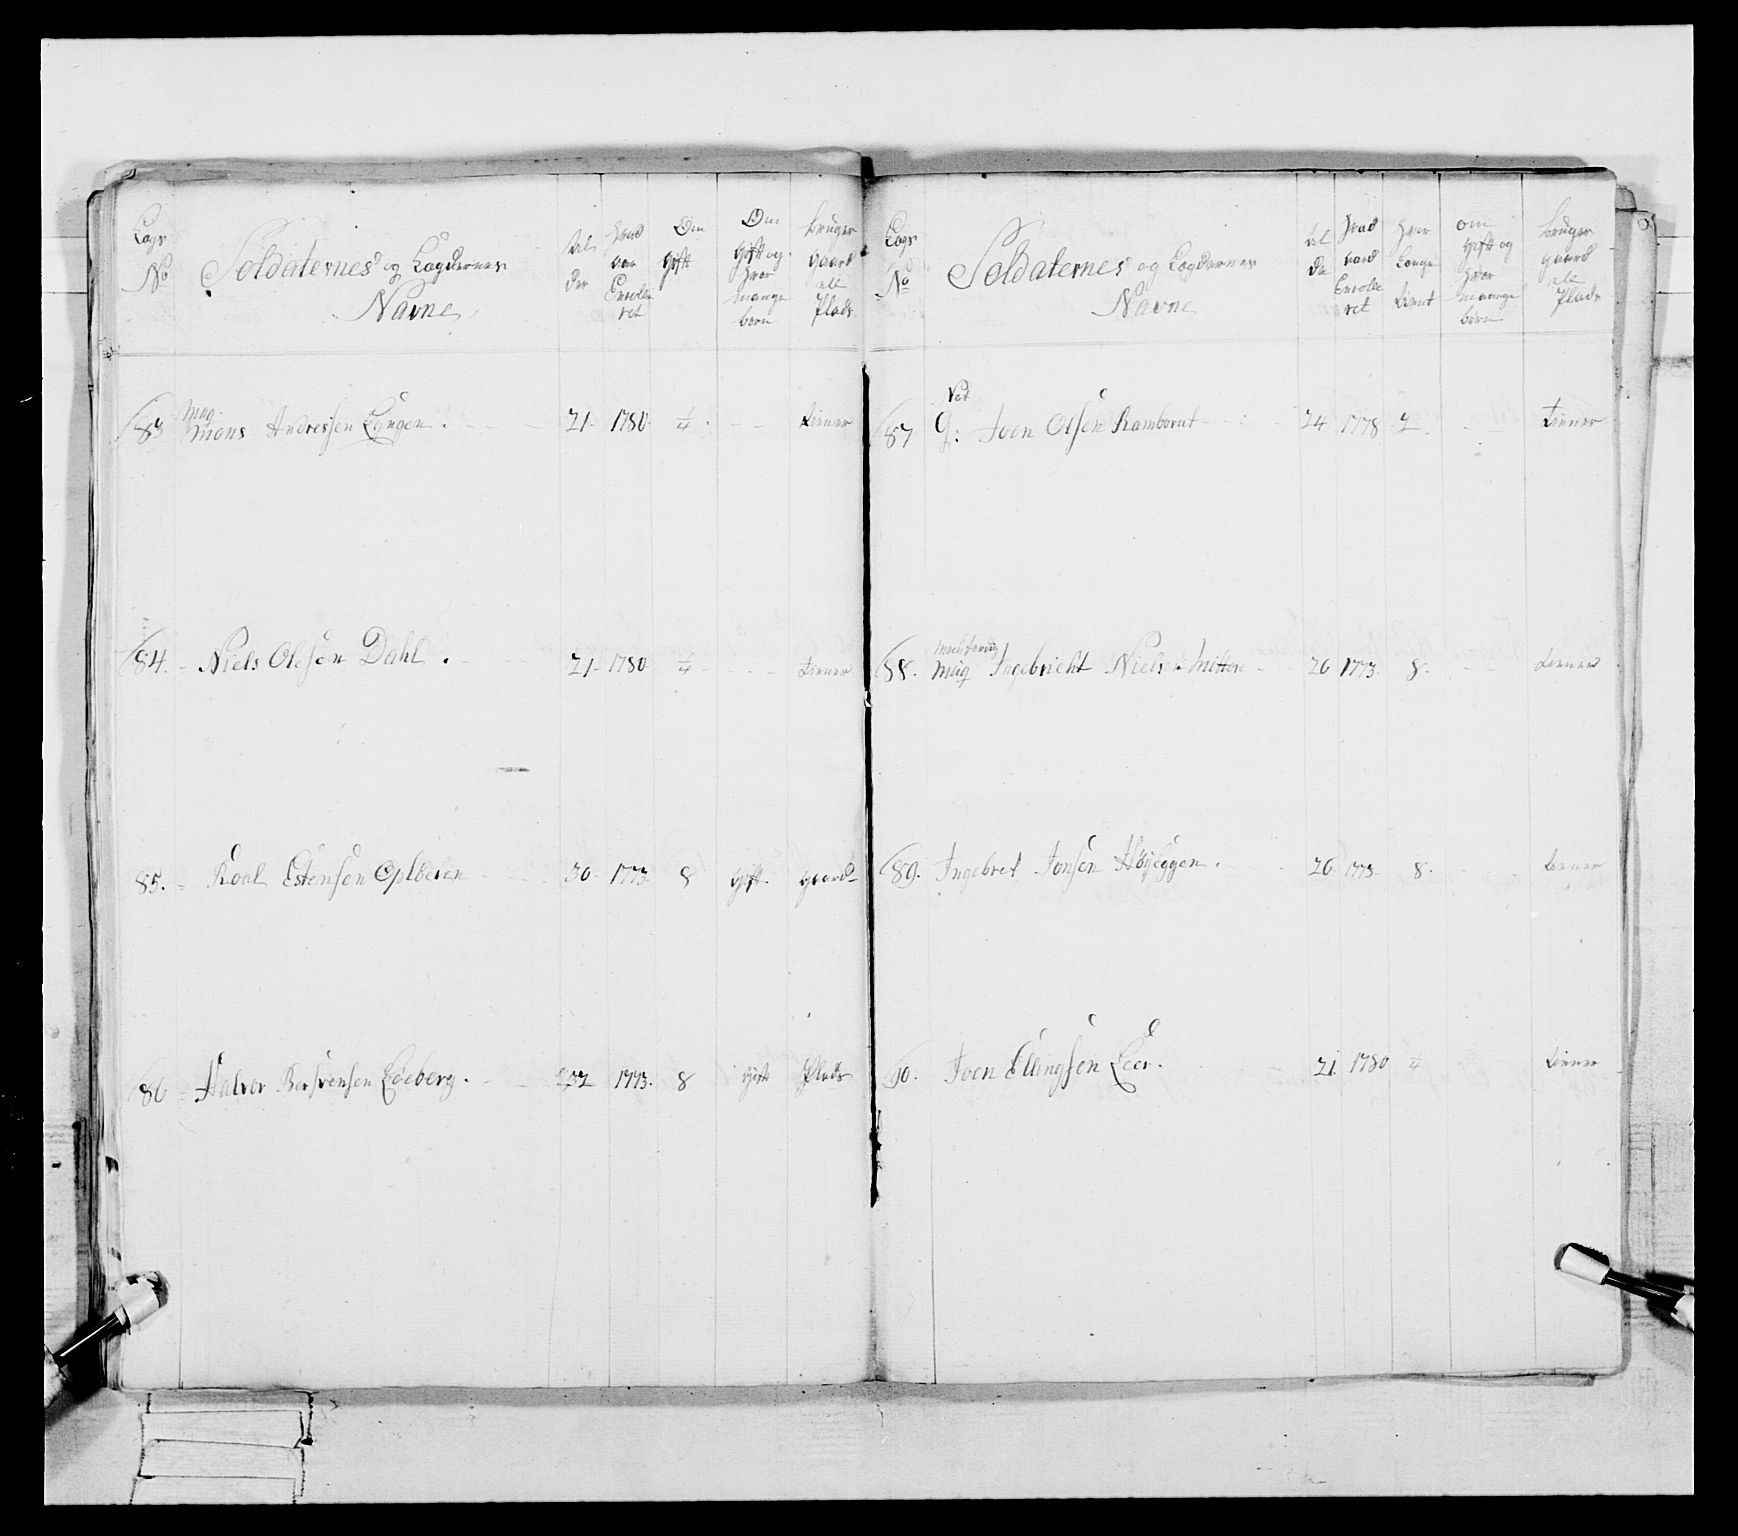 Lags No
Soldaternes og Lægdernes Navne
Al der
Hvad aar Enrolle ret
Om Gift
Om Gift og Hvor mange børn
Bruger Gaard ell Plads
83 Mons Andersen Langen 21 1780 ¼ Tiener
84. Niels Olesen Dahl 21 1780 ¼ Tiener
85. Roal Estensen 30 1773 8 Gift Gaard
86 Halvor Løeberg 32 1773 8 Gift Plads
Lags No
Soldaternes og Lægdernes Navne
Al der
Hvad aard Enrolle ret
Hvor Længe Tient
om Gift og Hvor mange børn
bruger gaard ell Plads
87 Joen Olsen Ramborut 24 1778 2 Tiener
88. Ingebricht Nielsen 26 1773 8. Tiener
89. Ingebret Jonsen Høyeggen 26 1773 8. Tiener
90. Joen Ellingsen Leer 21 1780 ¼ Tiener